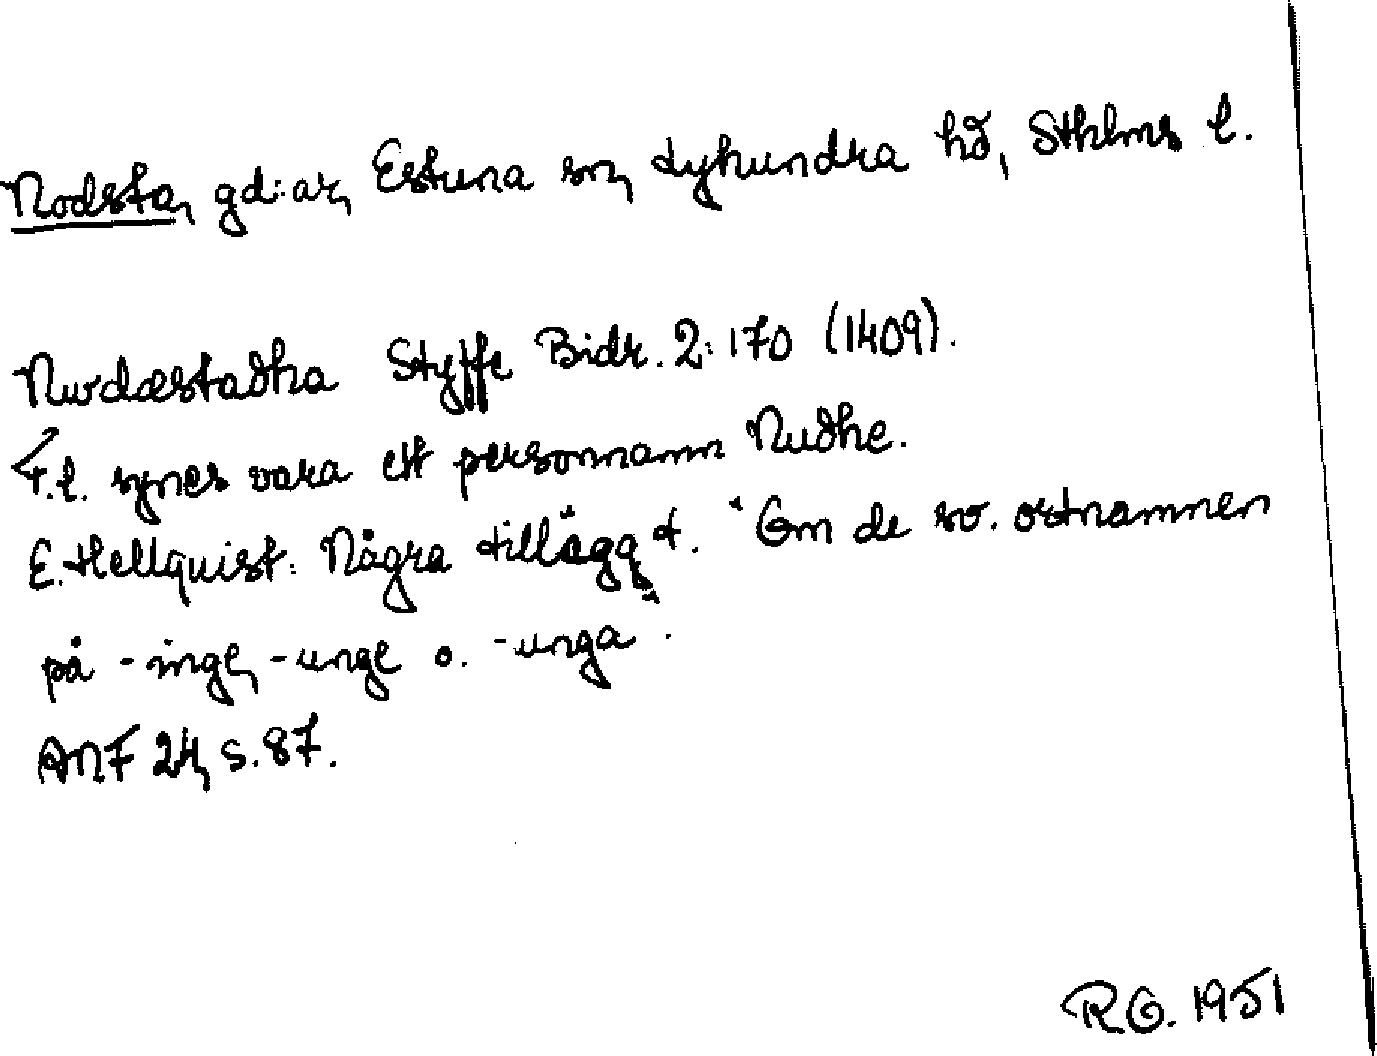 Nodsta, gd:ar, Estuna sn, Lyhundra hd, Sthlms l.
Nwdæstadha Styffe Bidr. 2:170 (1409).
F.l. synes vara ett personnamn Nudhe.
E. Hellquist: Några tillägg t. "Om de sv. ortnamnen
på -inge, -unge o. -unga".
ANF 24, s. 87.
R.G. 1951